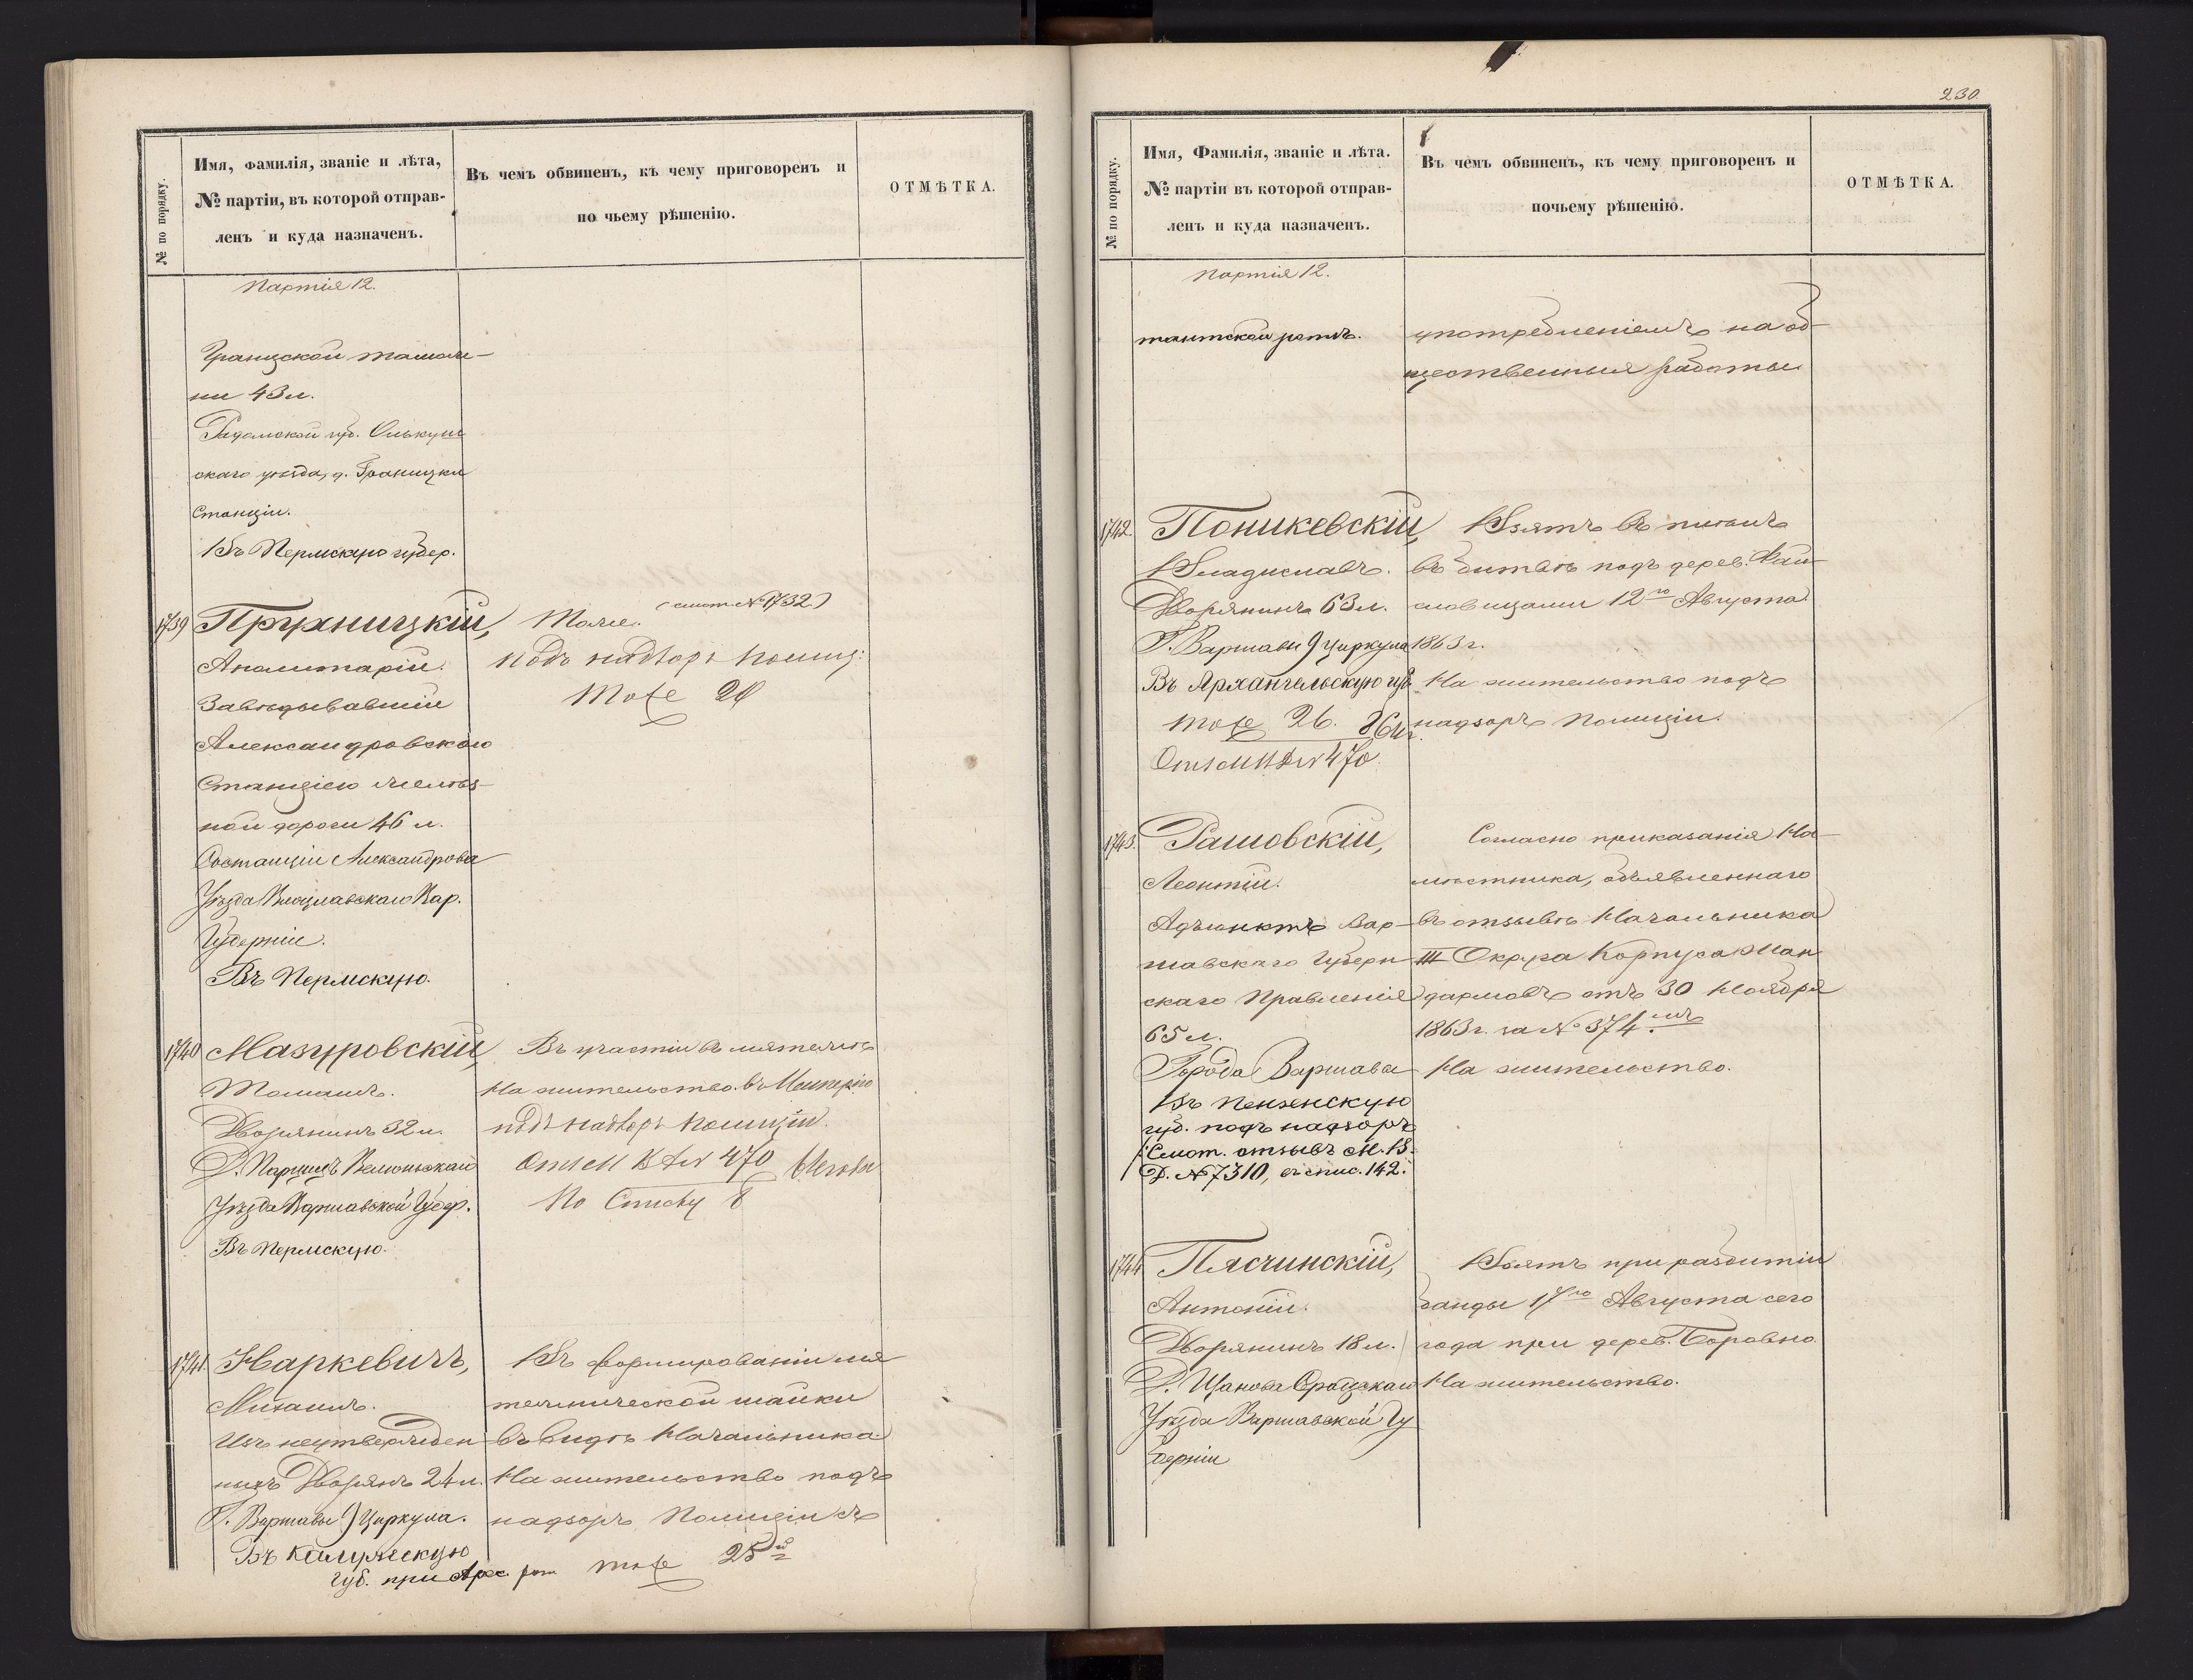 № по порядку.
Имя, Фамилія, званіе и лѣта,
№ партіи, въ которой отправ-
ленъ и куда назначенъ.
Въ чемъ обвиненъ, къ чему приговоренъ и
по чьему рѣшенію.
ОТМѢТКА.
Партія 12.
Границской тамож-
ни 43 л.
Радомской губ. Олькуш
скаго уѣзда, д. Границки
Станціи.
Въ Пермскую губер.
1739
Прухницкій,
Аполинарій.
Завѣдывавшій
Александровскою
Станціею желѣз-
ной дороги 46 л.
Со станціи Александрова
Уѣзда Влоцлавскаго Вар.
Губерніи.
Въ Пермскую.
(смот. № 1732)
Тоже.
подъ надзоръ полиц:
тоже 20
1740
Мазуровскій,
Томашъ.
Дворянинъ 32 л.
Д. Парцицъ Велюньскаго
Уѣзда Варшавской Губер.
Въ Пермскую.
Въ участіи въ мятежѣ
На жительство.
подъ надзоръ полиціи.
470
По Списку 8
1741.
Наркевичъ,
Михаилъ.
Изъ неутвержден
ныхъ Дворянъ 24 л.
Г. Варшавы 9 Циркула.
Въ Калужскую
губ. при Арес. рот
Въ формированіи мя
тежнической шайки
въ видѣ Начальника
На жительство подъ
надзоръ Полиціи съ
тоже 25й
230.
№ по порядку.
Имя, Фамилія, званіе и лѣта.
№ партіи въ которой отправ-
ленъ и куда назначенъ.
Въ чемъ обвиненъ, къ чему приговоренъ и
почьему рѣшенію.
ОТМѢТКА.
Партія 12.
тантской ротѣ.
употребленіемъ на об-
щественныя работы
1742.
Поникевскій,
Владиславъ.
Дворянинъ 63 л.
Г. Варшавы 9 Циркула
Въ Архангельскую губ.
тоже 26.
470.
Взятъ въ плѣнъ
въ битвѣ подъ дерев. Фай-
словицами 12го Августа
1863 г.
На жительство подъ
надзоръ Полиціи.
1743.
Рашовскій,
Леонтій.
Адъюнктъ Вар-
шавскаго Губерн
скаго Правленія
65 л.
Города Варшава
Въ Пензенскую
губ. подъ надзоръ
(Смот. отзывъ М. В.
Д. № 7310, въ спис. 142.
Согласно приказанія На-
мѣстника, объявленнаго
въ отзывѣ Начальника
III Округа Корпуса Жан
дармовъ отъ 30 Ноября
1863 г. за № 374.мъ
На жительство.
1744
Пясчинскій,
Антоній.
Дворянинъ 18 л.
Д. Щанова Сѣрадзскаго
Уѣзда Варшавской Гу
берніи
Взятъ при разбитіи
банды 17го Августа сего
года при дерев. Боровно.
На жительство.